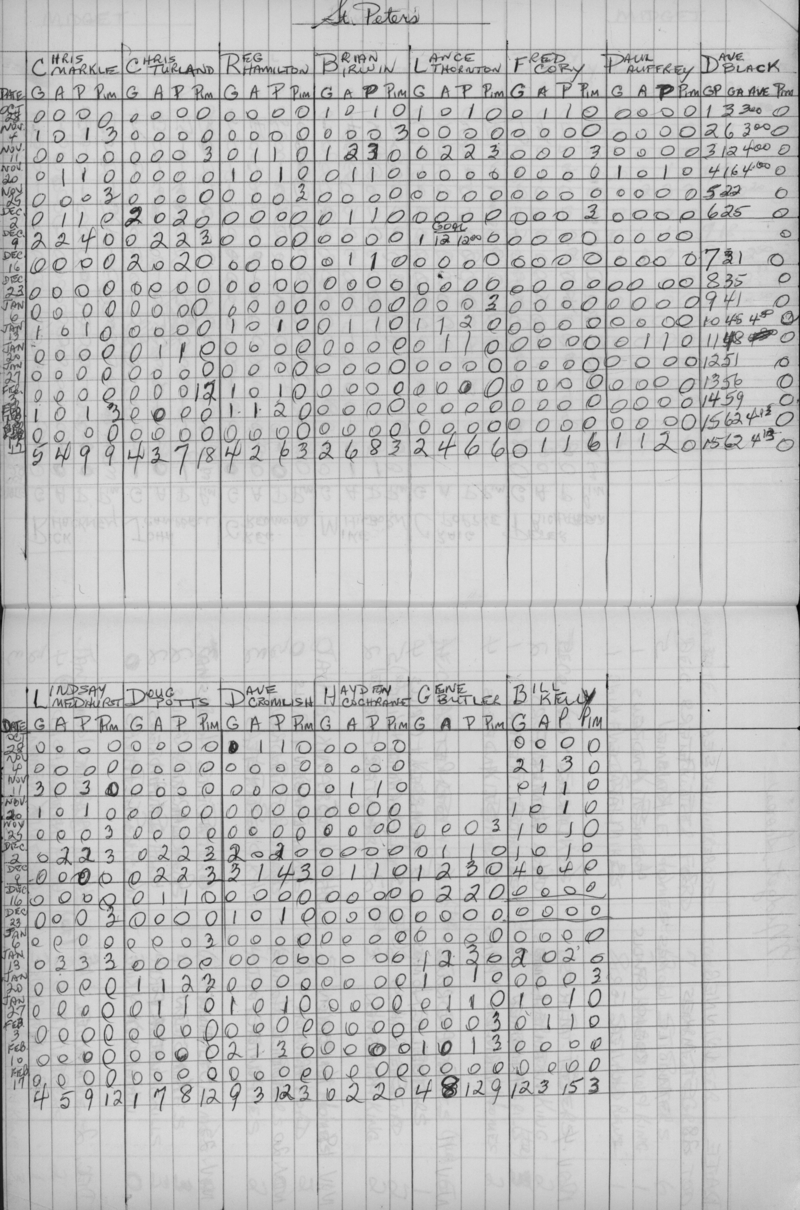 St. Peter's
CHRIS MARKLE CHRIS TURLAND REG HAMILTON BRIAN IRWIN LANCE THORNTON FRED CORY PAUL AUFFREY DAVE BLACK
DATE G A P Pim G A P Pim G A P Pim G A P Pim G A P Pim G A P Pim G A P Pim GP GA AVE Pim
OCT 28 0 0 0 0 0 0 0 0 0 0 0 0 1 0 1 0 1 0 1 0 0 1 1 0 0 0 0 0 1 3 300 0
NOV 4 1 0 1 3 0 0 0 0 0 0 0 0 0 0 0 3 0 0 0 0 0 0 0 0 0 0 0 0 2 6 300 0
NOV 11 0 0 0 0 0 0 0 3 0 1 1 0 1 2 3 0 0 2 2 3 0 0 0 3 0 0 0 0 3 12 400 0
NOV 20 0 1 1 0 0 0 0 0 1 0 1 0 0 1 1 0 0 0 0 0 0 0 0 0 1 0 1 0 4 16 400 0
NOV 25 0 0 0 3 0 0 0 0 0 0 0 3 0 0 0 0 0 0 0 0 0 0 0 0 0 0 0 0 5 22 0
DEC 2 0 1 1 0 2 0 2 0 0 0 0 0 0 1 1 0 0 0 0 0 0 0 0 3 0 0 0 0 6 25 0
GOAL
DEC 9 2 2 4 0 0 2 2 3 0 0 0 0 0 0 0 0 1 12 1200 0 0 0 0 0 0 0 0 0 0
DEC 16 0 0 0 0 2 0 2 0 0 0 0 0 0 1 1 0 0 0 0 0 0 0 0 0 0 0 0 0 7 31 0
DEC 23 0 0 0 0 0 0 0 0 0 0 0 0 0 0 0 0 0 0 0 0 0 0 0 0 0 0 0 0 8 35 0
JAN 6 0 0 0 0 0 0 0 0 0 0 0 0 0 0 0 0 0 0 0 3 0 0 0 0 0 0 0 0 9 41 0
JAN 13 1 0 1 0 0 0 0 0 1 0 1 0 0 1 1 0 1 1 2 0 0 0 0 0 0 0 0 0 10 45 450 0
JAN 20 0 0 0 0 0 1 1 0 0 0 0 0 0 0 0 0 0 1 1 0 0 0 0 0 0 1 1 0 11 48 0
JAN 27 0 0 0 0 0 0 0 0 0 0 0 0 0 0 0 0 0 0 0 0 0 0 0 0 0 0 0 0 12 51 0
FEB 3 0 0 0 0 0 0 0 12 1 0 1 0 0 0 0 0 0 0 0 0 0 0 0 0 0 0 0 0 13 56 0
FEB 10 1 0 1 3 0 0 0 0 1 1 2 0 0 0 0 0 0 0 0 0 0 0 0 0 0 0 0 0 14 59 0
0 0 0 0 0 0 0 0 0 0 0 0 0 0 0 0 0 0 0 0 0 0 0 0 0 0 0 0 15 62 413 0
17 5 4 9 9 4 3 7 18 4 2 6 3 2 6 8 3 2 4 6 6 0 1 1 6 1 1 2 0 15 62 413 0
LINDSAY MEDHURST DOUG POTTS DAVE CROMLISH HAYDEN COCHRANE GENE BUTLER BILL KELLY
DATE G A P Pim G A P Pim G A P Pim G A P Pim G A P Pim G A P Pim
OCT 28 0 0 0 0 0 0 0 0 0 1 1 0 0 0 0 0 0 0 0 0
NOV 4 0 0 0 0 0 0 0 0 0 0 0 0 0 0 0 0 2 1 3 0
NOV 11 3 0 3 0 0 0 0 0 0 0 0 0 0 1 1 0 0 1 1 0
NOV 20 1 0 1 0 0 0 0 0 0 0 0 0 0 0 0 0 1 0 1 0
NOV 25 0 0 0 3 0 0 0 0 0 0 0 0 0 0 0 0 0 0 0 3 1 0 1 0
DEC 2 0 2 2 3 0 2 2 3 2 0 2 0 0 0 0 0 0 1 1 0 1 0 1 0
DEC 9 0 0 0 0 0 2 2 3 3 1 4 3 0 1 1 0 1 2 3 0 4 0 4 0
DEC 16 0 0 0 0 0 1 1 0 0 0 0 0 0 0 0 0 0 2 2 0 0 0 0 0
DEC 23 0 0 0 3 0 0 0 0 1 0 1 0 0 0 0 0 0 0 0 0 0 0 0 0
JAN 6 0 0 0 0 0 0 0 3 0 0 0 0 0 0 0 0 0 0 0 0 0 0 0 0
JAN 13 0 3 3 3 0 0 0 0 0 0 0 0 0 0 0 0 1 2 3 0 2 0 2 0
JAN 20 0 0 0 0 1 1 2 3 0 0 0 0 0 0 0 0 1 0 1 0 0 0 0 3
JAN 27 0 0 0 0 0 1 1 0 1 0 1 0 0 0 0 0 0 1 1 0 1 0 1 0
FEB 3 0 0 0 0 0 0 0 0 0 0 0 0 0 0 0 0 0 0 0 3 0 1 1 0
FEB 10 0 0 0 0 0 0 0 0 2 1 3 0 0 0 0 0 1 0 1 3 0 0 0 0
FEB 17 0 0 0 0 0 0 0 0 0 0 0 0 0 0 0 0 0 0 0 0 0 0 0 0
4 5 9 12 1 7 8 12 9 3 12 3 0 2 2 0 4 8 12 9 12 3 15 3